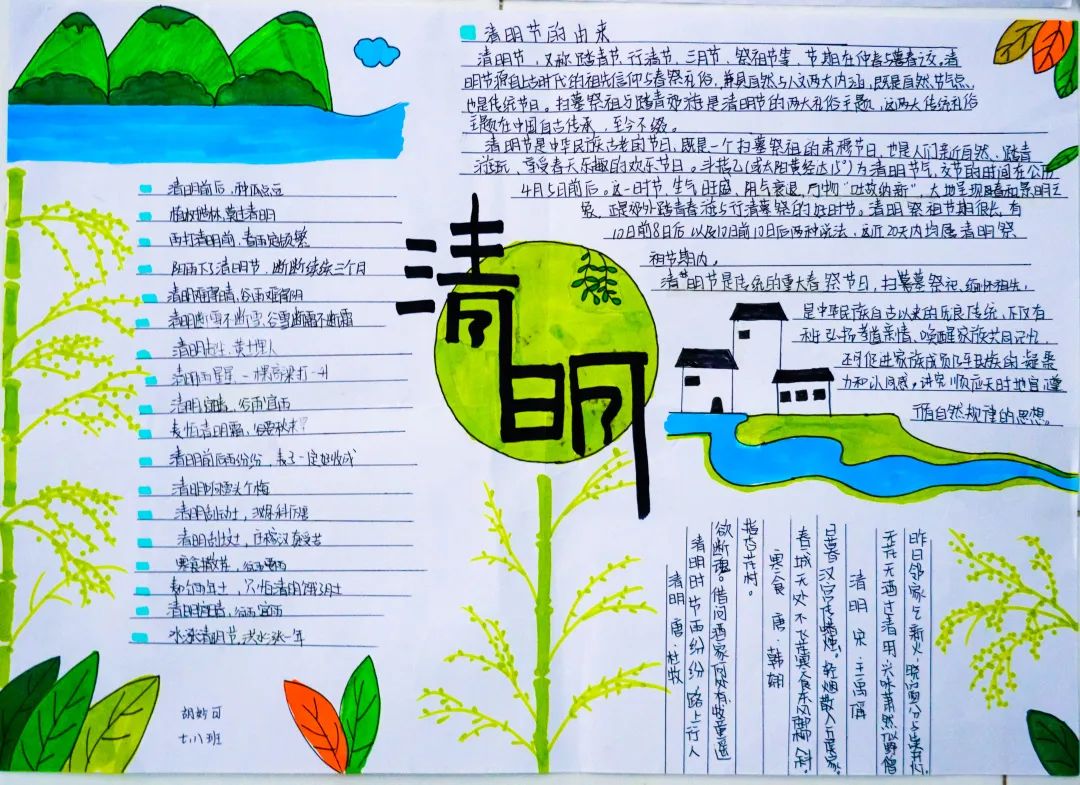 清明节的由来
清明节,又称踏青节、行清节、三月节、祭祖节等,节期在仲春与暮春之交。清
明节源自上古时代的祖先信仰与春祭礼俗,兼具自然与人文两大内涵,既是自然节气点,
也是传统节日。扫墓祭祖与踏青郊游是清明节的两大礼俗主题,这两大传统礼俗
主题在中国自古传承,至今不缀。
清明节是中华民族古老的节日,既是一个扫墓祭祖的肃穆节日,也是人们亲近自然、踏青
游玩、享受春天乐趣的欢乐节日。斗指乙(或太阳黄经达15°)为清明节气,交节的时间在公历
4月5日前后。这一时节,生气旺盛、阴气衰退,万物“吐故纳新”,大地呈现春和景明之
象,正是郊外踏青春游与行清墓祭的好时节。清明祭祖节期很长,有
10日前8日后以及10日前10日后两种说法,这近20天内均属清明祭
祖节期内。
清明节是传统的重大春祭节日,扫墓祭祀、缅怀祖先,
是中华民族自古以来的优良传统,不仅有
利于弘扬孝道亲情、唤醒家族共同记忆,
还可促进家族成员乃至民族的凝聚
力和认同感。讲究顺应天时地宜遵
循自然规律的思想。
清明前后,种瓜点豆
植树造林,莫过清明
雨打清明前,春雨定频繁
阴雨下了清明节,断断续续三个月
清明难得晴,谷雨难得阴
清明断雪不断雪,谷雪断霜不断霜
清明雨星星,一棵高粱打一升
清明宜晴,谷雨宜雨
麦怕清明霜,谷要秋来
清明前后雨纷纷,麦子一定好收成
清明宜晴,谷雨宜雨
水涨清明节,洪水涨一年
清明
清明 唐·杜牧
清明时节雨纷纷,路上行人
欲断魂。借问酒家何处有,牧童遥
指杏花村。
寒食 唐·韩翃
春城无处不飞花,寒食东风御柳斜。
日暮汉宫传蜡烛,轻烟散入五侯家。
清明 宋·王禹偁
无花无酒过清明,兴味萧然似野僧
昨日邻家乞新火,晓窗分与读书灯。
胡妙可
七.八班